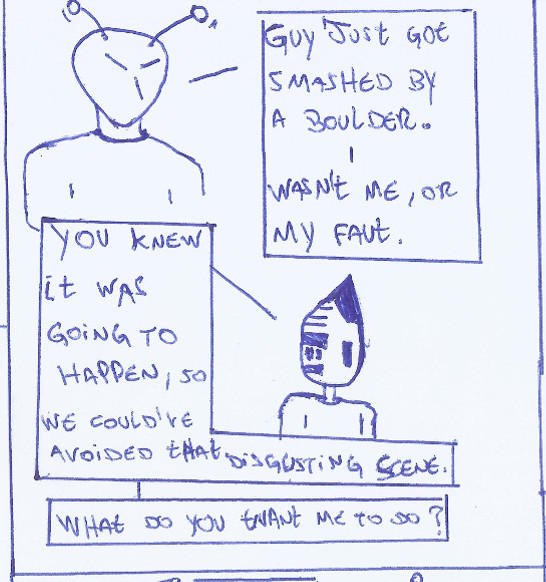 GUY JUST GOT
SMASHED BY
A BOULDER.
I
WASN'T ME, OR
MY FAUT.
YOU KNEW
It WAS
GOING TO
HAPPEN, SO
WE COULD'VE
AVOIDED tHAt DISGUSTING SCENE.
WHAt DO YOU tWANT ME TO DO?